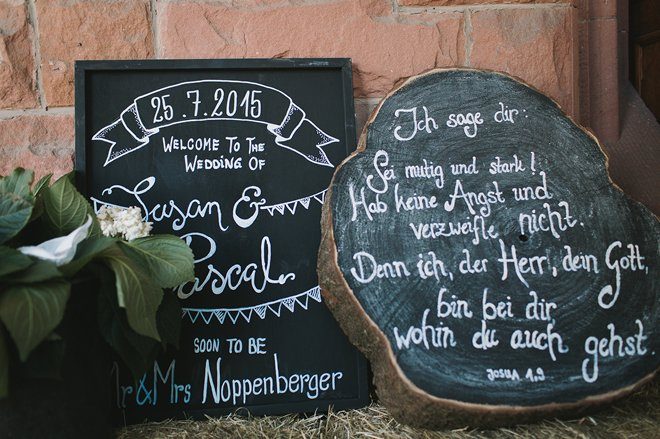 25.7.2015
WELCOME TO THE
WEDDING OF
Susan &
Pascal
SOON TO BE
Mr & Mrs Noppenberger
Ich sage dir:
Sei mutig und stark!
Hab keine Angst und
verzweifle nicht.
Denn ich, der Herr, dein Gott,
bin bei dir
wohin du auch gehst.
JOSUA 1,9